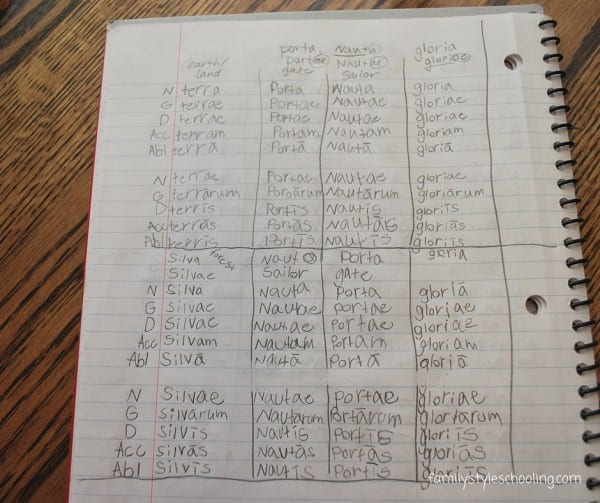 porta nauta gloria
earth/ portae Nautae gloriae
land gate Sailor
N terra Porta Nauta gloria
G terrae Portae Nautae gloriae
D terrae Portae Nautae gloriae
Acc terram Portam Nautam gloriam
Abl terrā Portā Nautā gloriā
N terrae Portae Nautae gloriae
G terrarum Nautārum gloriārum
D terrīs Portīs Nautīs gloriīs
Acc terrās Portās Nautās gloriās
Abl terrīs Portīs Nautīs gloriīs
Silva forest Porta gloria
Silvae Sailor gate
N Silva Nauta Porta gloria
G Silvae Nautae portae gloriae
D Silvae Nautae Portae gloriae
Acc Silvam Nautam Portam gloriam
Abl Silvā Nautā Portā gloriā
N Silvae Nautae portae gloriae
G Silvārum Nautarum Portārum gloriarum
D Silvīs Nautis Portīs gloriīs
Acc Silvās Nautās Portās gloriās
Abl Silvīs Nautīs Portīs gloriīs
familystyleschooling.com